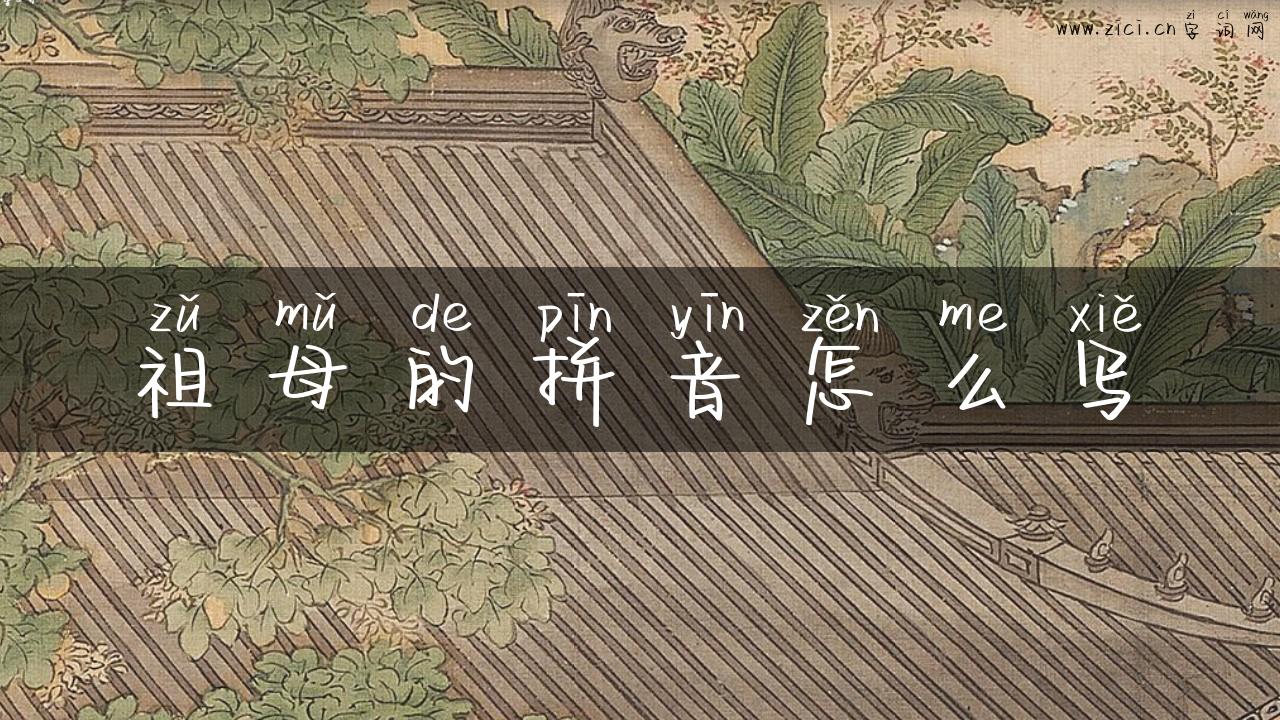 zì cí wǎng
www.zici.cn 字词网
zǔ mǔ de pīn yīn zěn me xiě
祖母的拼音怎么写